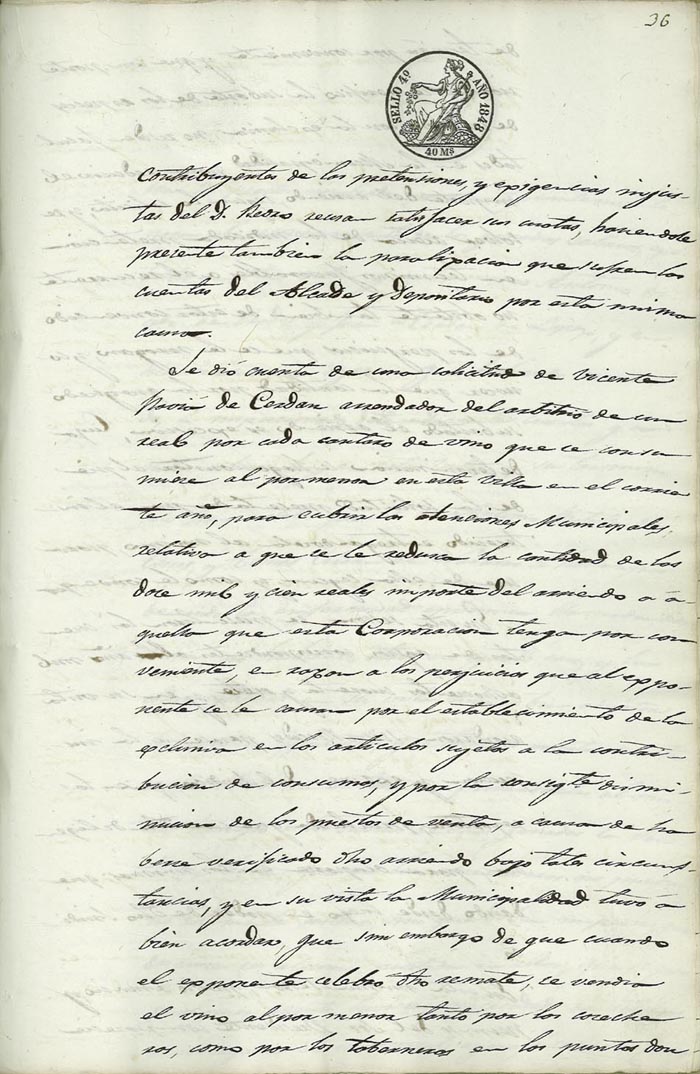 36
SELLO 4º AÑO 1848
40 Ms
contribuyentes de las pretensiones y exigencias injus-
tas del D. Pedro reusan satisfacer sus cuotas, haciendole
presente tambien la paralizacion que sufren las
cuentas del Alcalde y Depositario por esta misma
causa.
Se dió cuenta de una solicitud de Vicente
Pavia de Cerdan arrendador del arbitrio de un
real por cada cantaro de vino que se consu
miese al por menor en esta Villa en el corrien
te año, para cubrir las atenciones Municipales,
relativa a que se le reduzca la cantidad de los
doce mil y cien reales importe del arriendo a a-
quella que esta Corporacion tenga por con
veniente, en razon a los perjuicios que al expo-
nente se le causan por el establecimiento de la
esclusiva en los articulos sujetos a la contri-
bucion de consumos, y por la consigte dismi-
nucion de los puestos de venta, a causa de ha
berse verificado dho arriendo bajo tales circuns-
tancias, y en su vista la Municipalidad tuvó a
bien acordar, que sin embargo de que cuando
el exponente celebró dho remate, se vendia
el vino al por menor tanto por los coseche
ros, como por los taberneros en los puntos don